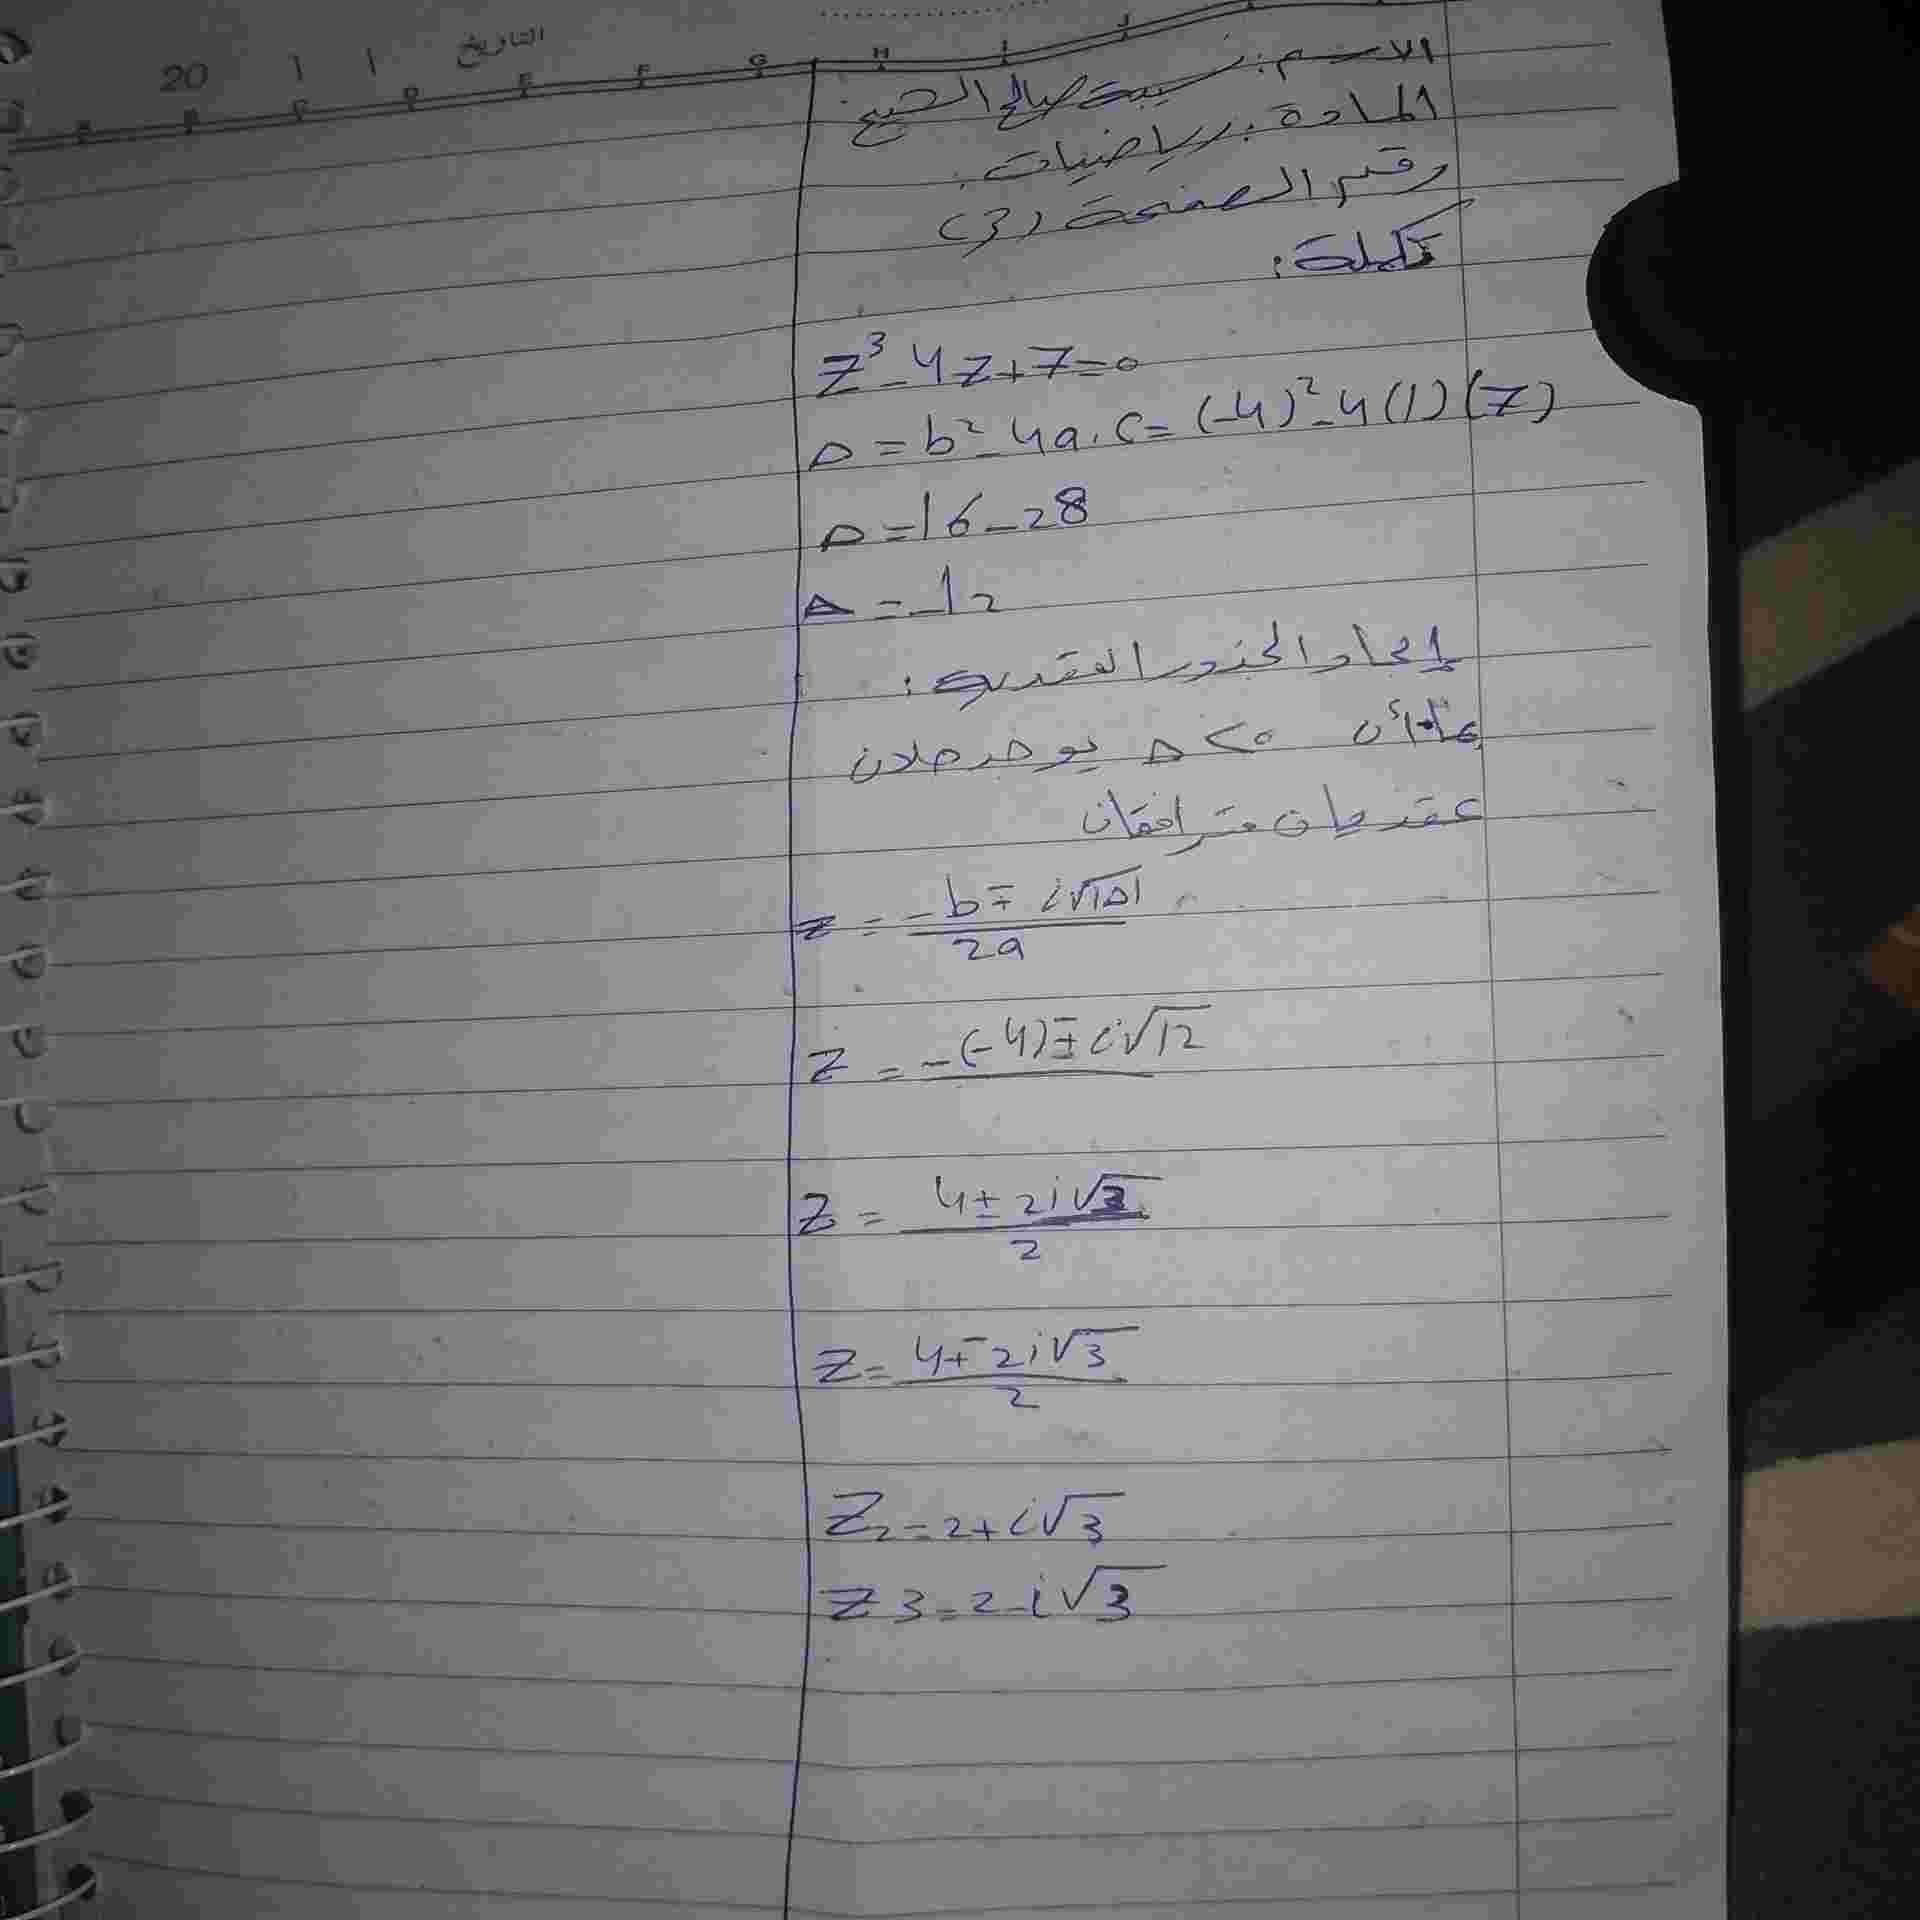 التاريخ / / 20
الاسم: نسيبة صالح الشيخ.
المادة: رياضيات.
رقم الصفحة (3)
تكملة:
Z³ - 4Z + 7 = 0
Δ = b² - 4a.c = (-4)² - 4(1)(7)
Δ = 16 - 28
Δ = -12
إيجاد الجذور العقدية:
بما أن Δ < 0 يوجد حلان
عقديان مترافقان
Z = (-b ∓ i√|Δ|) / 2a
Z = -(-4) ∓ i√12
Z = (4 ± 2i√3) / 2
Z = (4 ∓ 2i√3) / 2
Z₂ = 2 + i√3
Z3 = 2 - i√3